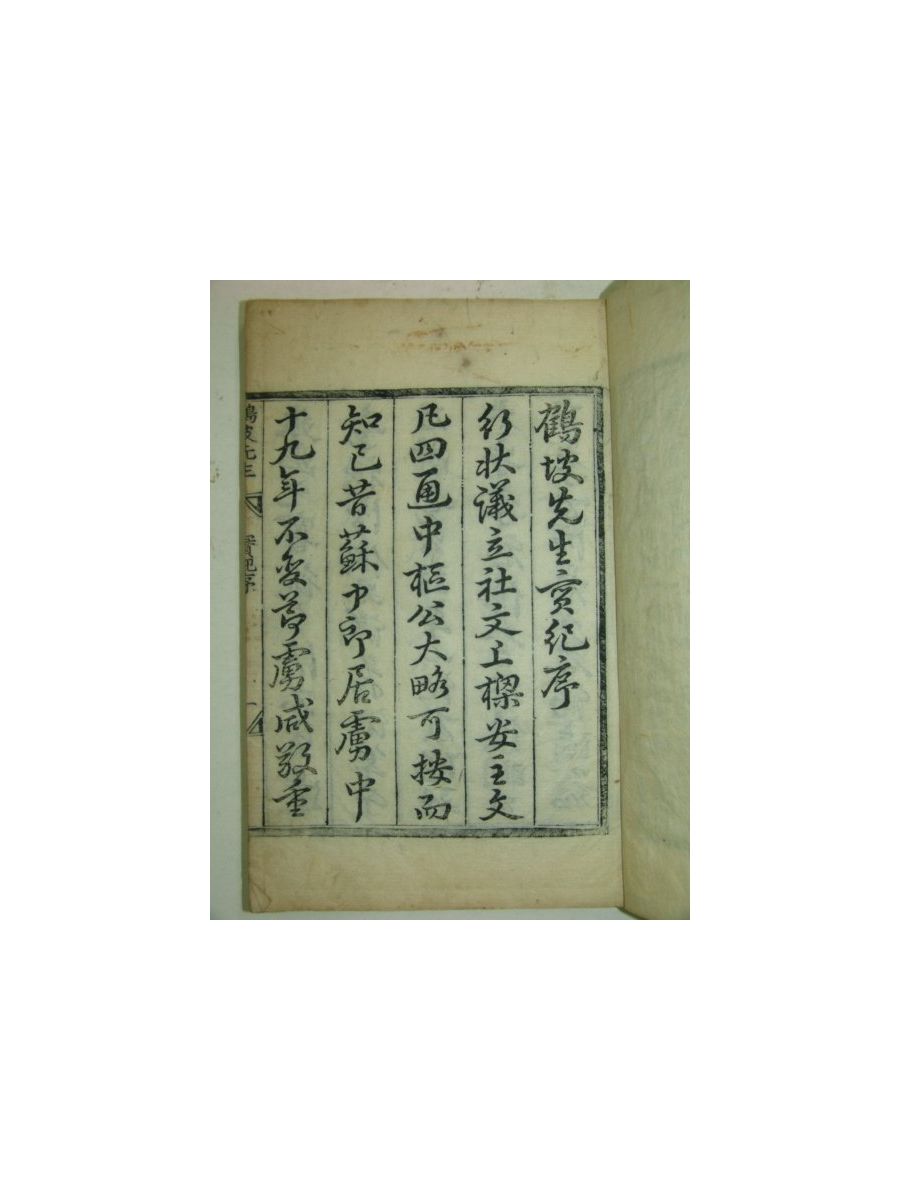 鶴坡先生實紀序
行狀議立社文上樑安主文
凡四通中樞公大略可按而
知已昔蘇中郎居虜中
十九年不變節虜咸敬重
鶴坡先生 實紀序